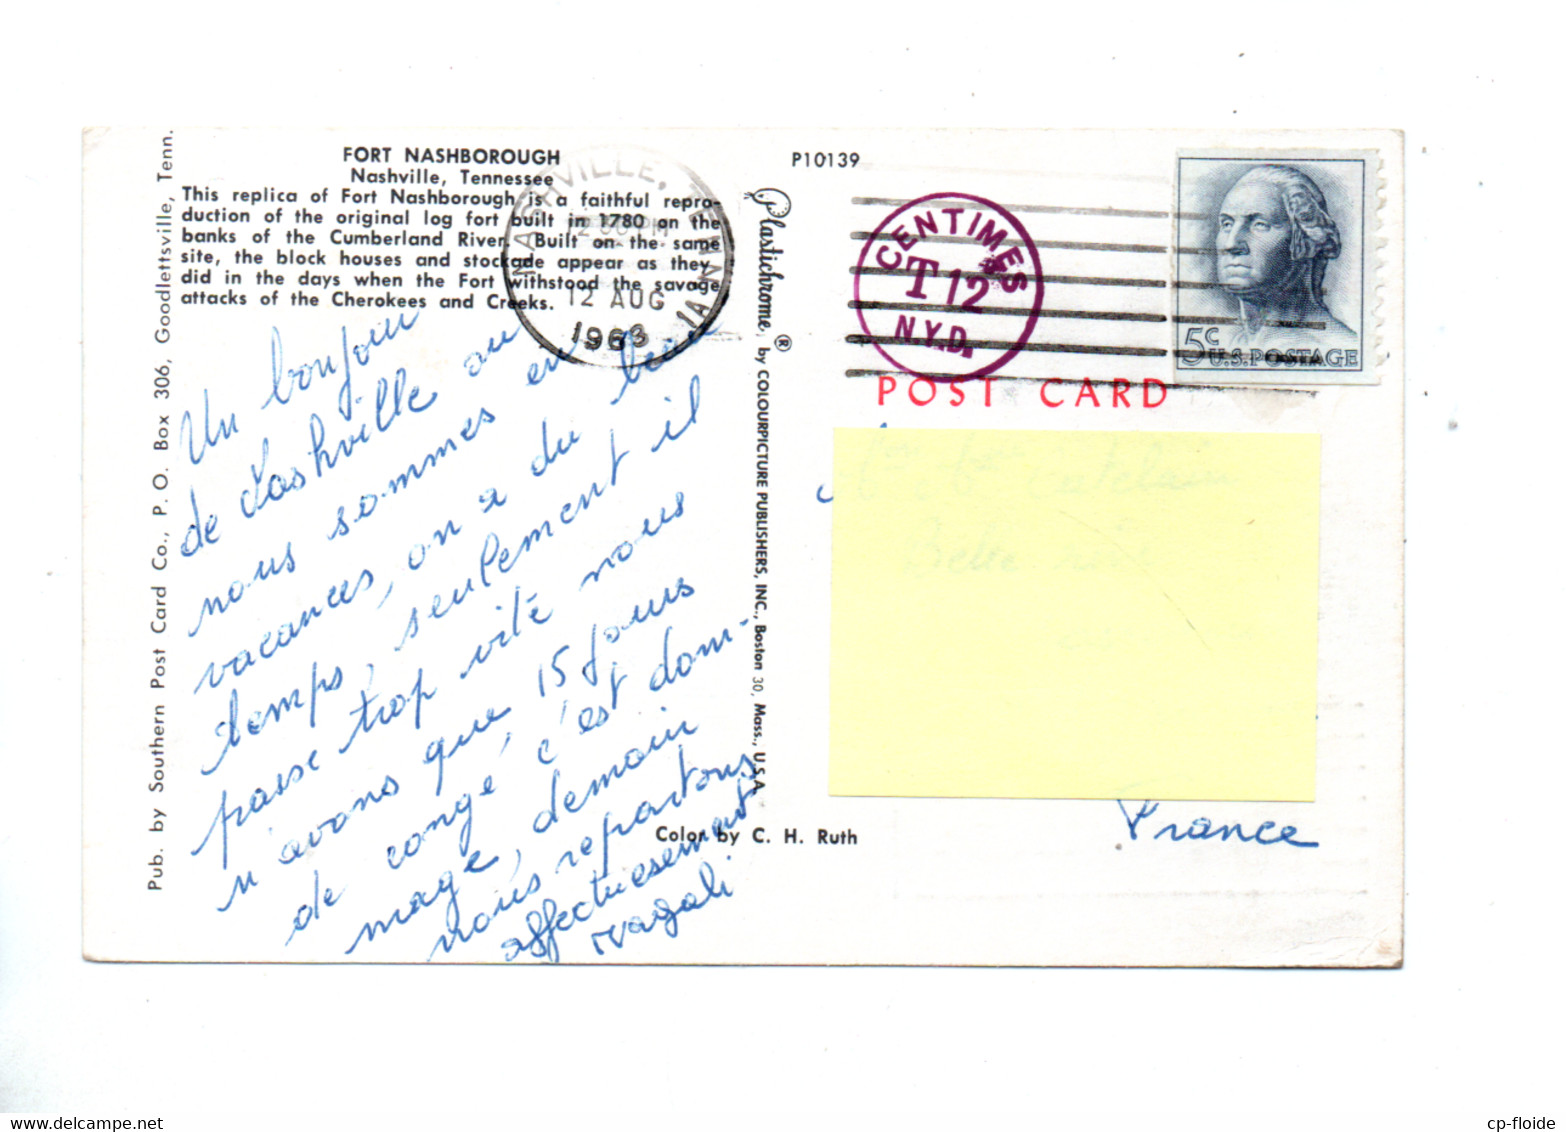 FORT NASHBOROUGH
Nashville, Tennessee
This replica of Fort Nashborough is a faithful repro-
duction of the original log fort built in 1780 on the
banks of the Cumberland River. Built on the same
site, the block houses and stockade appear as they
did in the days when the Fort withstood the savage
attacks of the Cherokees and Creeks.
Pub. by Southern Post Card Co., P. O. Box 306, Goodlettsville, Tenn.
NASHVILLE, TENN
12 AUG
1963
Un bonjour
de Nashville ou
nous sommes en
vacances, on a du beau
temps, seulement il
passe trop vite nous
n'avons que, 15 jours
de congé c'est dom-
mage, demain
nous repartons
affectueusement
Magali
Plastichrome ® by COLOURPICTURE PUBLISHERS, INC., Boston 30, Mass., U.S.A.
Color by C. H. Ruth
P10139
CENTIMES
T 12
N.Y.D.
5c
U.S. POSTAGE
POST CARD
Belle
France
cp-floide
www.delcampe.net